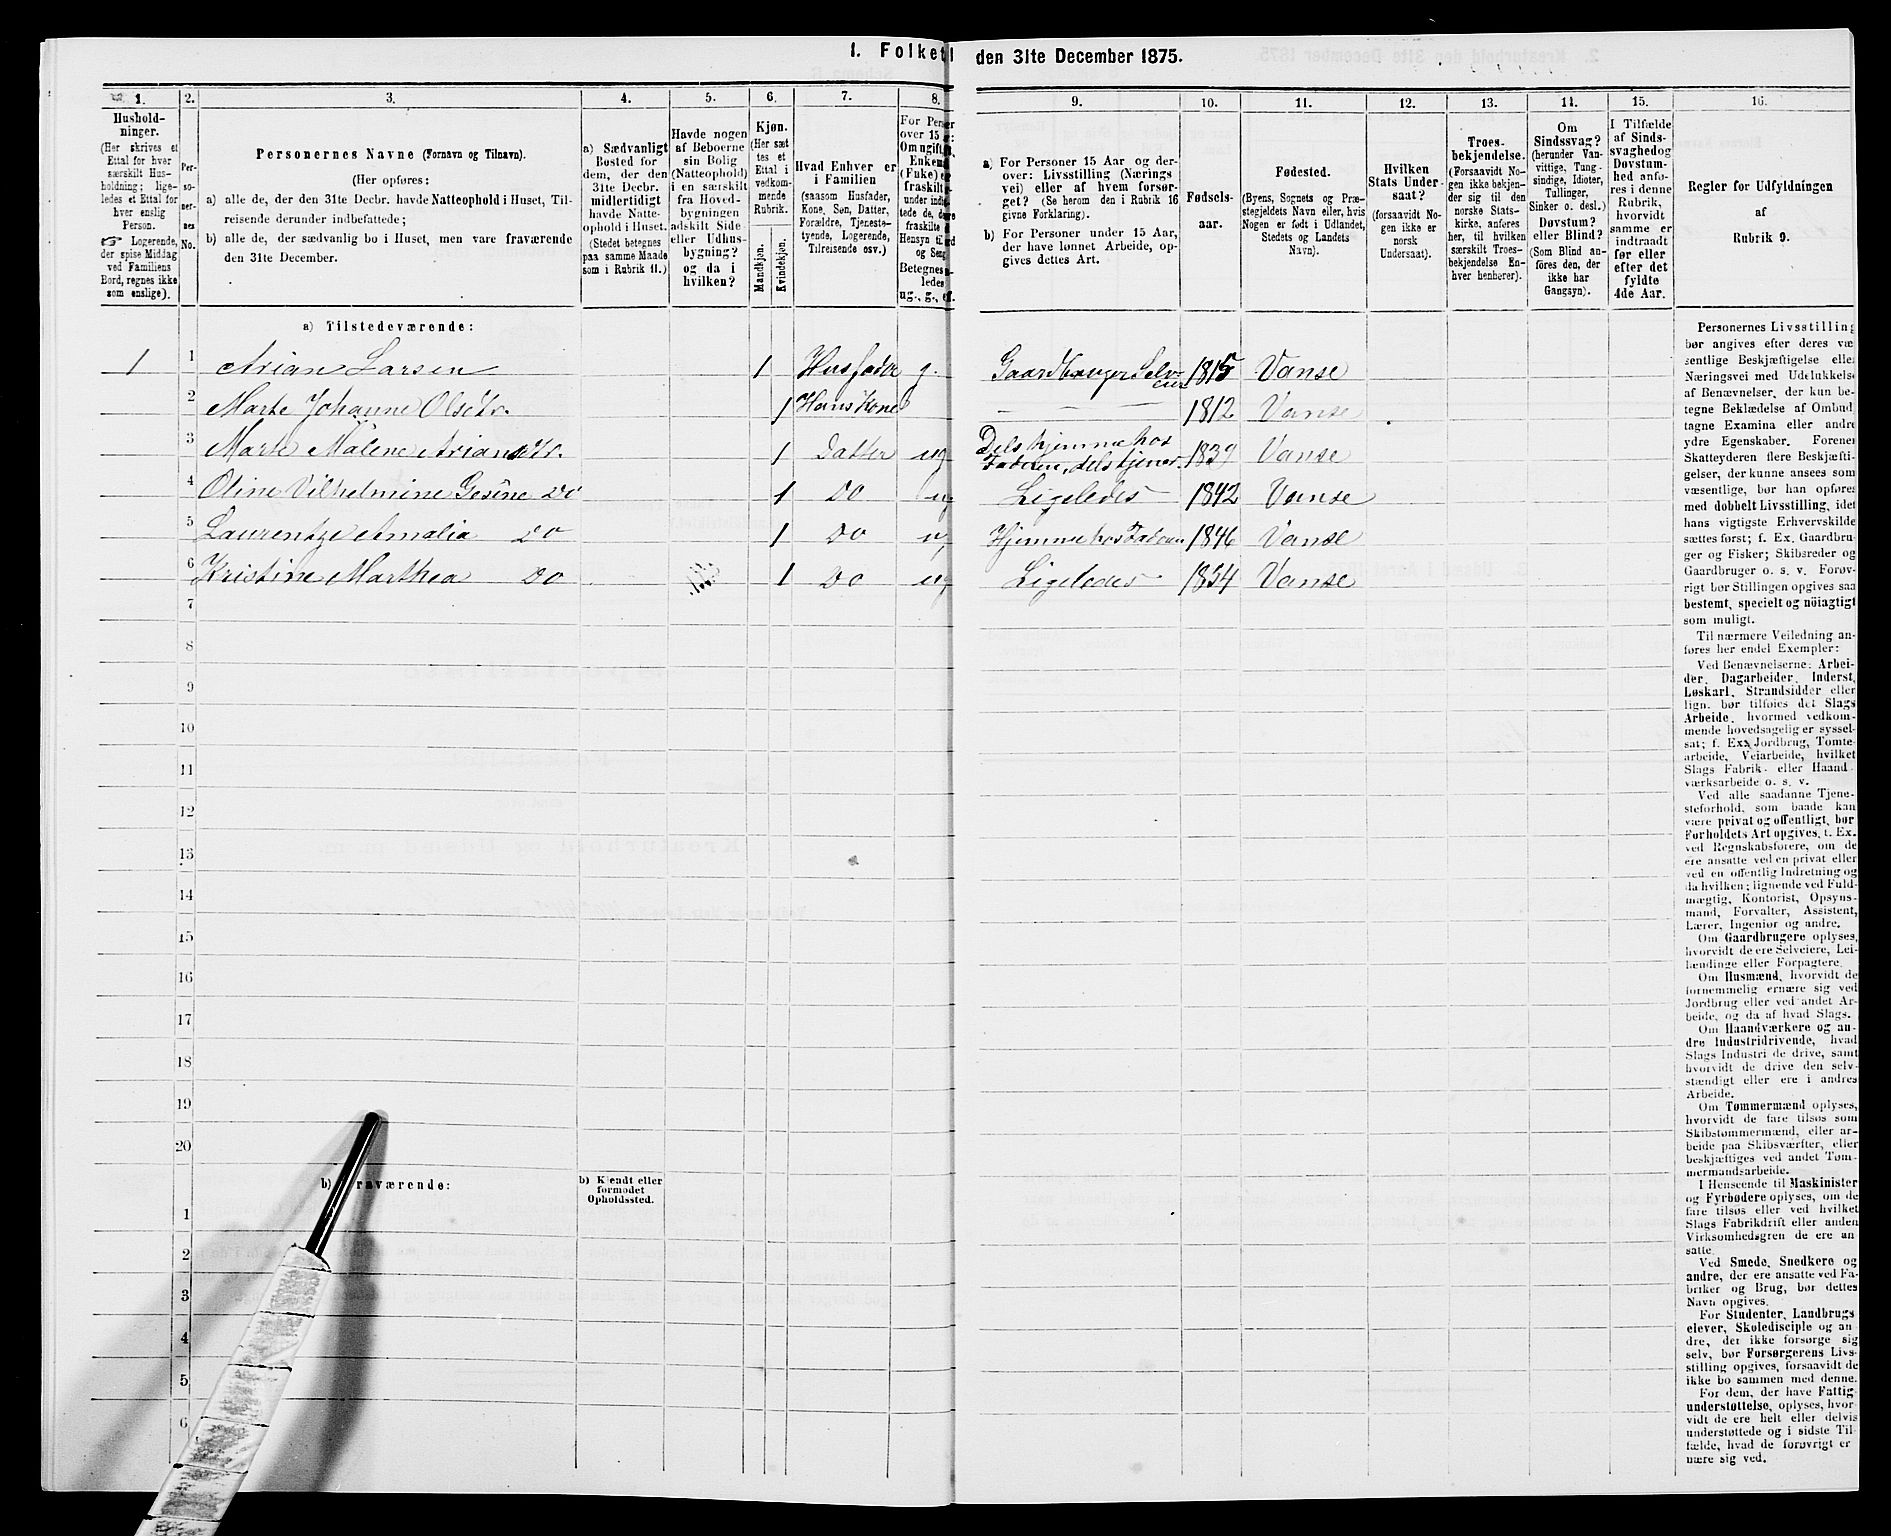 1. Folket
den 31te December 1875.
1.
Hushold-
ninger.
(Her skrives et
Ettal for hver
særskilt Hus-
holdning; lige-
ledes et Ettal for
hver enslig
Person.
☞ Logerende,
der spise Middag
ved Familiens
Bord, regnes ikke
som enslige).
2.
Per-
so-
ner-
nes
No.
3.
Personernes Navne (Fornavn og Tilnavn).
(Her opføres:
a) alle de, der den 31te Decbr. havde Natteophold i Huset, Til-
reisende derunder indbefattede;
b) alle de, der sædvanlig bo i Huset, men vare fraværende
den 31te December.
4.
a) Sædvanligt
Bosted for
dem, der den
31te Decbr.
midlertidigt
havde Natte-
ophold i Huset.
(Stedet betegnes
paa samme Maade
som i Rubrik 11.)
5.
Havde nogen
af Beboerne
sin Bolig
(Natteophold)
i en særskilt
fra Hoved-
bygningen
adskilt Side-
eller Udhus-
bygning?
og da i
hvilken?
6.
Kjøn.
(Her sæt
tes et
Ettal i
vedkom-
mende
Rubrik.
Mandkjøn.
Kvindekjøn.
7.
Hvad Enhver er
i Familien
(saasom Husfader,
Kone, Søn, Datter,
Forældre, Tjeneste-
tyende, Logerende,
Tilreisende osv.)
8.
For Per
over 15
Om ugift,
Enke
(Fuke)
fraskilt
under indbe
tede de,
fraskilte
Hensyn til
og Seng
Betegnes
ledes
ug., g., ef.
9.
a) For Personer 15 Aar og der-
over: Livsstilling (Nærings
vei) eller af hvem forsør-
get? (Se herom den i Rubrik 16
givne Forklaring).
b) For Personer under 15 Aar,
der have lønnet Arbeide, op-
gives dettes Art.
10.
Fødsels-
aar.
11.
Fødested.
(Byens, Sognets og Præ-
stegjeldets Navn eller, hvis
Nogen er født i Udlandet,
Stedets og Landets
Navn).
12.
Hvilken
Stats Under-
saat?
(forsaavidt No-
gen ikke er
norsk
Undersaat).
13.
Troes-
bekjendelse.
(Forsaavidt No-
gen ikke bekjen-
der sig til den
norske Stats-
kirke, anføres
her, til hvilken
særskilt Troes-
bekjendelse En-
hver henhører).
14.
Om
Sindssvag?
(herunder Van-
vittige, Tung-
sindige, Idioter,
Tullinger,
Sinker o. desl.)
Døvstum?
eller Blind?
(Som Blind an-
føres den, der
ikke har
Gangsyn).
15.
I Tilfælde
af Sinds-
svaghed og
Døvstum-
hed anfø-
res i denne
Rubrik,
hvorvidt
samme er
indtraadt
før eller
efter det
fyldte
4de Aar.
16.
Regler for Udfyldningen
af
Rubrik 9.
a) Tilstedeværende:
1 1 Arian Larsen 1 Husfader g. Gaardbruger Selv- 1815 Vanse
eier
2 Marte Johanne Olsdtr. 1 Hans Kone 1812 Vanse
Dels hjemme hos
3 Marte Malene Ariansdtr. 1 Datter ug Faderen, dels tjener. 1839 Vanse
4 Oline Vilhelmine Gesine Do 1 Do ug Ligeledes 1842 Vanse
5 Laurentze Amalia Do 1 Do Hjemme hos Faderen 1846 Vanse
6 Kristine Marthea Do 1 Do ug Ligeledes 1854 Vanse
7
8
9
10
11
12
13
14
15
16
17
18
19
20
b) raværende:
b) Kjendt eller
formodet
Opholdssted.
1
2
3
4
5
6
Personernes Livsstilling
bør angives efter deres væ
sentlige Beskjæftigelse elle
Næringsvei med Udelukkelse
af Benævnelser, der kun be-
tegne Beklædelse af Ombud,
tagne Examina eller andre
ydre Egenskaber. Forener
Skatteyderen flere Beskjæfti-
gelser, der kunne ansees som
væsentlige, bør han opføres
med dobbelt Livsstilling, idet
hans vigtigste Erhvervskilde
sættes først; f. Ex. Gaardbru-
ger og Fisker; Skibsreder og
Gaardbruger o. s. v. Forøv-
rigt bør Stillingen opgives saa
bestemt, specielt og nöiagtigt
som muligt.
Til nærmere Veiledning an-
føres her endel Exempler:
Ved Benævnelserne: Arbei-
der, Dagarbeider, Inderst,
Løskarl, Strandsidder eller
lign. bør tilføies det Slags
Arbeide, hvormed vedkom-
mende hovedsagelig er syssel-
sat; f. Ex. Jordbrug, Tomte-
arbeide, Veiarbeide, hvilket
Slags Fabrik- eller Haand-
værksarbeide o. s. v.
Ved alle saadanne Tjene-
steforhold, som baade kan
være privat og offentligt, bør
Forholdets Art opgives, t. Ex.
ved Regnskabsførere, om de
ere ansatte ved en privat eller
ved en offentlig Indretning og
da hvilken; lignende ved Fuld-
mægtig, Kontorist, Opsyns-
mand, Forvalter, Assistent,
Lærer, Ingeniør og andre.
Om Gaardbrugere oplyses,
hvorvidt de ere Selveiere, Lei-
lændinge eller Forpagtere.
Om Husmænd, hvorvidt de
fornemmelig ernære sig ved
Jordbrug eller ved andet Ar-
beide, og da af hvad Slags.
Om Haandværkere og an-
dre Industridrivende, hvad
Slags Industri de drive, samt
hvorvidt de drive den selv-
stændigt eller ere i andres
Arbeide.
Om Tømmermænd oplyses,
hvorvidt de fare tilsøs som
Skibstømmermænd, eller ar-
beide paa Skibsværfter, eller
beskjæftiges ved andet Tøm-
mermandsarbeide.
I Henseende til Maskinister
og Fyrbødere oplyses, om de
fare tilsøs eller ved hvilket
Slags Fabrikdrift eller anden
Virksomhedsgren de ere an
satte.
Ved Smede, Snedkere og
andre, der ere ansatte ved Fa-
briker og Brug, bør dettes
Navn opgives.
For Studenter, Landbrugs
elever, Skoledisciple og an
dre, der ikke forsørge sig
selv, bør Forsørgerens Livs-
stilling opgives, forsaavidt de
ikke bo sammen med denne.
For dem, der have Fattig-
understøttelse, oplyses, hvor-
vidt de ere helt eller delvis
understøttede og i sidste Til-
fælde, hvad de forøvrigt er
nære sig ved.